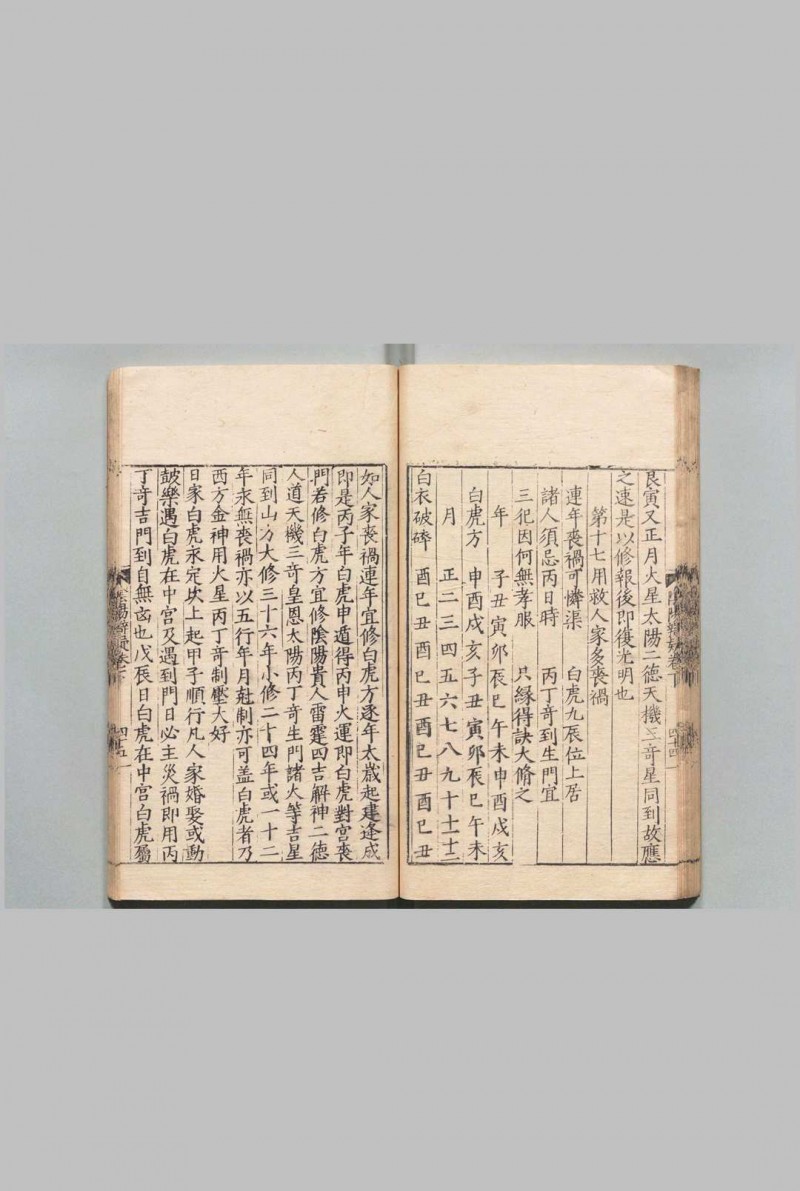 艮寅又正月火星太陽二德天機三奇星同到故應
之速是以修報後即復光明也
第十七用救人家多喪禍
連年喪禍可憐渠　白虎九辰位上居
諸人須忌丙日時　丙丁奇到生門宜
三犯因何無孝服　只緣得訣大脩之
年　子丑寅卯辰巳午未申酉戌亥
白虎方　申酉戌亥子丑寅卯辰巳午未
月　正二三四五六七八九十十一十二
白衣破碎　酉巳丑酉巳丑酉巳丑酉巳丑
如人家喪禍連年宜修白虎方逐年太歲起建逢成
即是丙子年白虎申遁得丙申火運即白虎對宮喪
門若修白虎方宜修陰陽貴人雷霆四吉解神二德
人道天機三奇皇恩太陽丙丁奇生門諸火等吉星
同到山方大修三十六年小修二十四年或一十二
年永無喪禍亦以五行年月尅制亦可盖白虎者乃
西方金神用火星丙丁奇制壓大好
日家白虎永定坎上起甲子順行凡人家婚娶或動
皷樂遇白虎在中宮及遇到門日必主災禍即用丙
丁奇吉門到自無凶也戊辰日白虎在中宮白虎屬
卷下
四十四
卷下
四十五